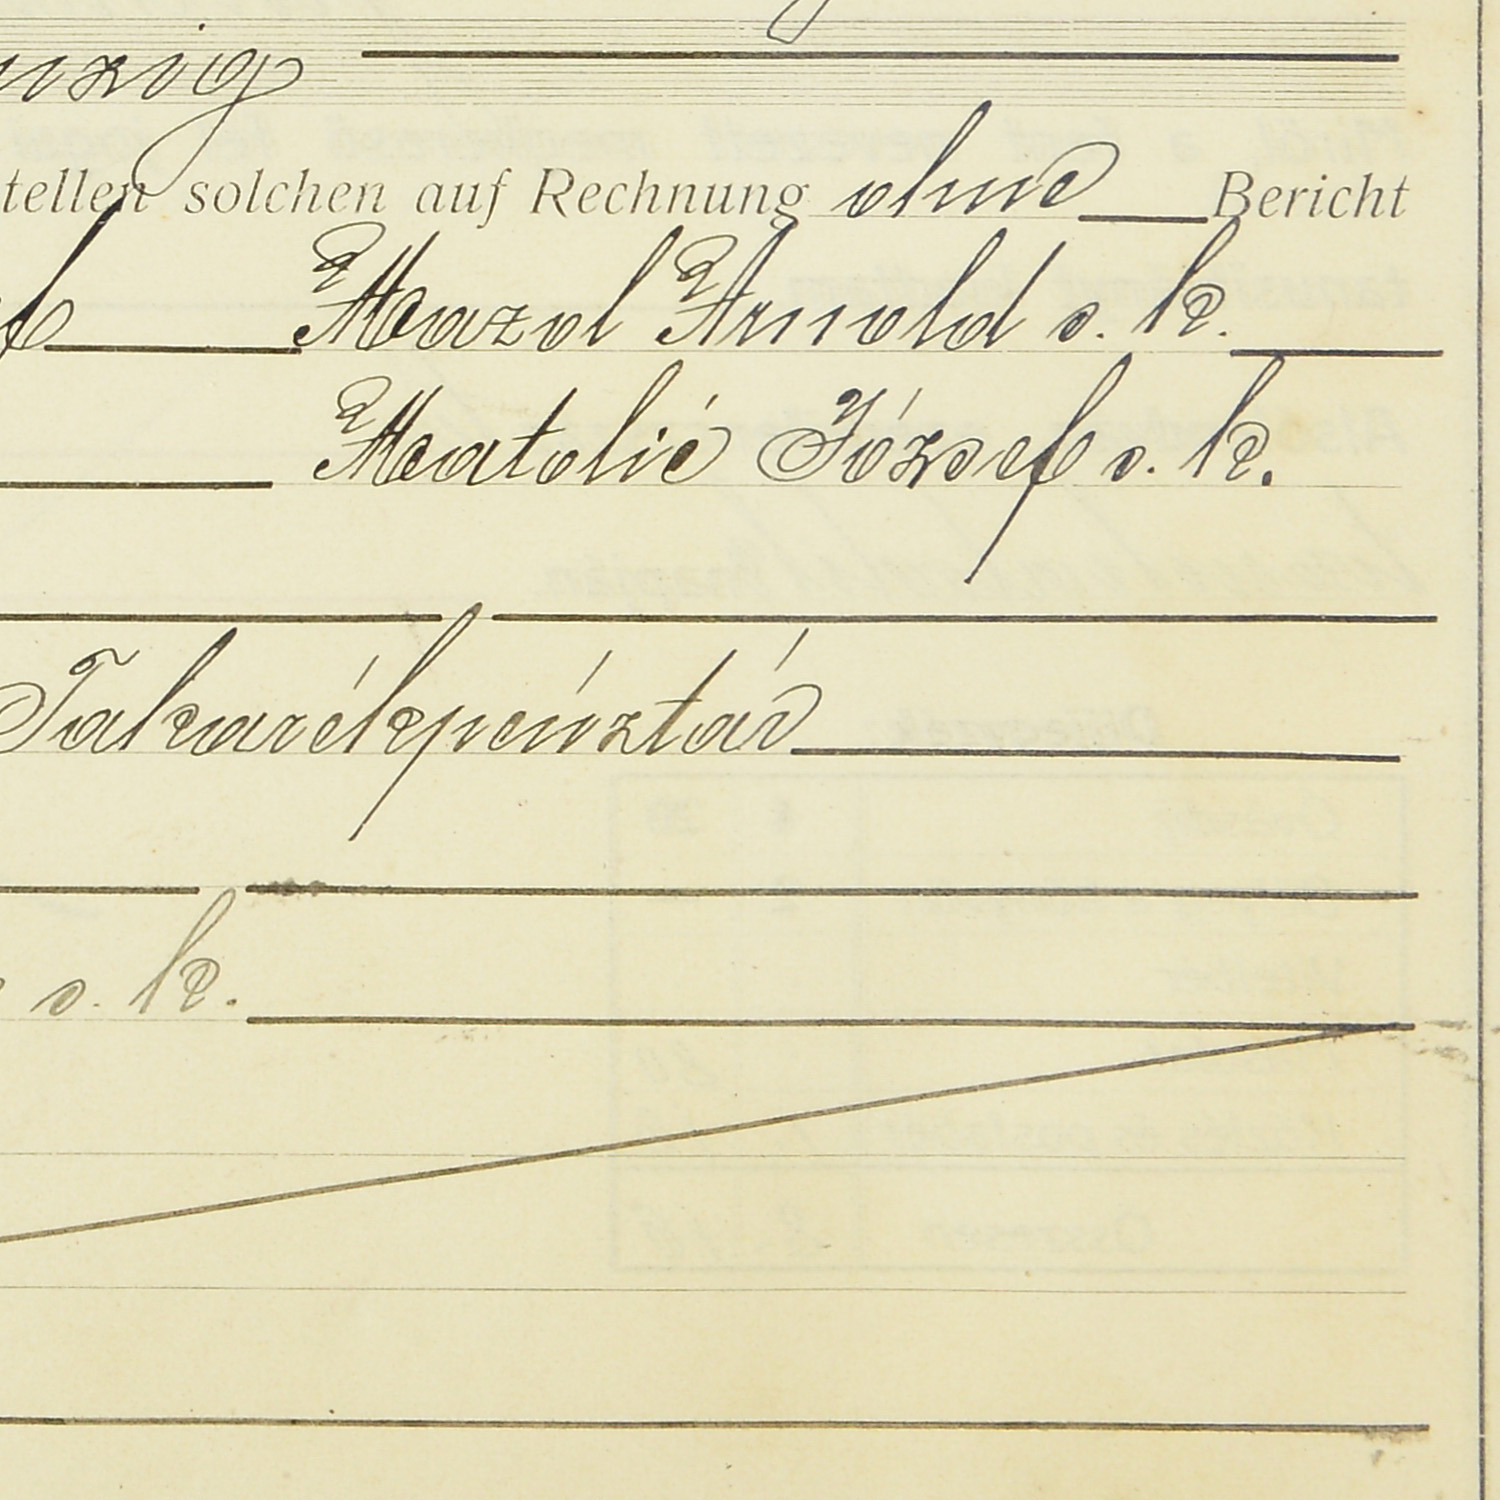 nzig
tellen solchen auf Rechnung ohne Bericht
Mazol Arnold s. k.
Matolić József s. k.
Takarékpénztár
s. k.